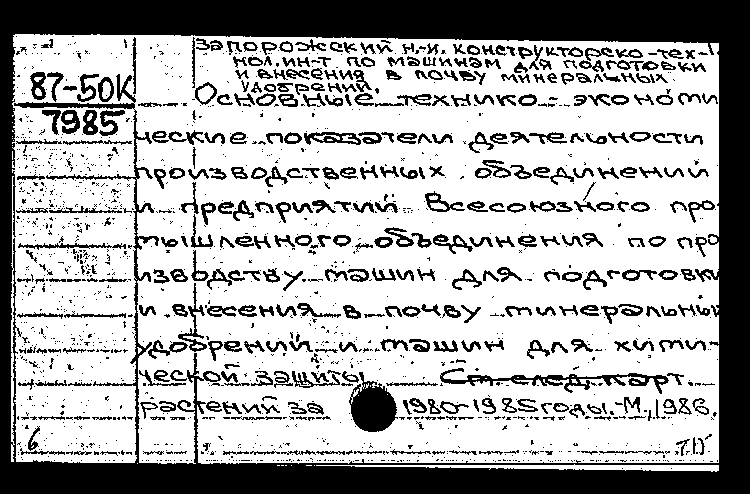 Запорожский н.-и. конструкторско-тех-
нол. ин-т по машинам для подготовки
и внесения в почву минеральных
удобрений.
87-50К
7985
Основные технико-экономи
ческие показатели деятельности
производственных объединений
и предприятий Всесоюзного про-
мышленного объединения по про
изводству машин для подготовки
и внесения в почву минеральных
удобрений и машин для хими-
ческой защиты См. след. карт.
растений за 1980-1985 годы.-М., 1986.
6